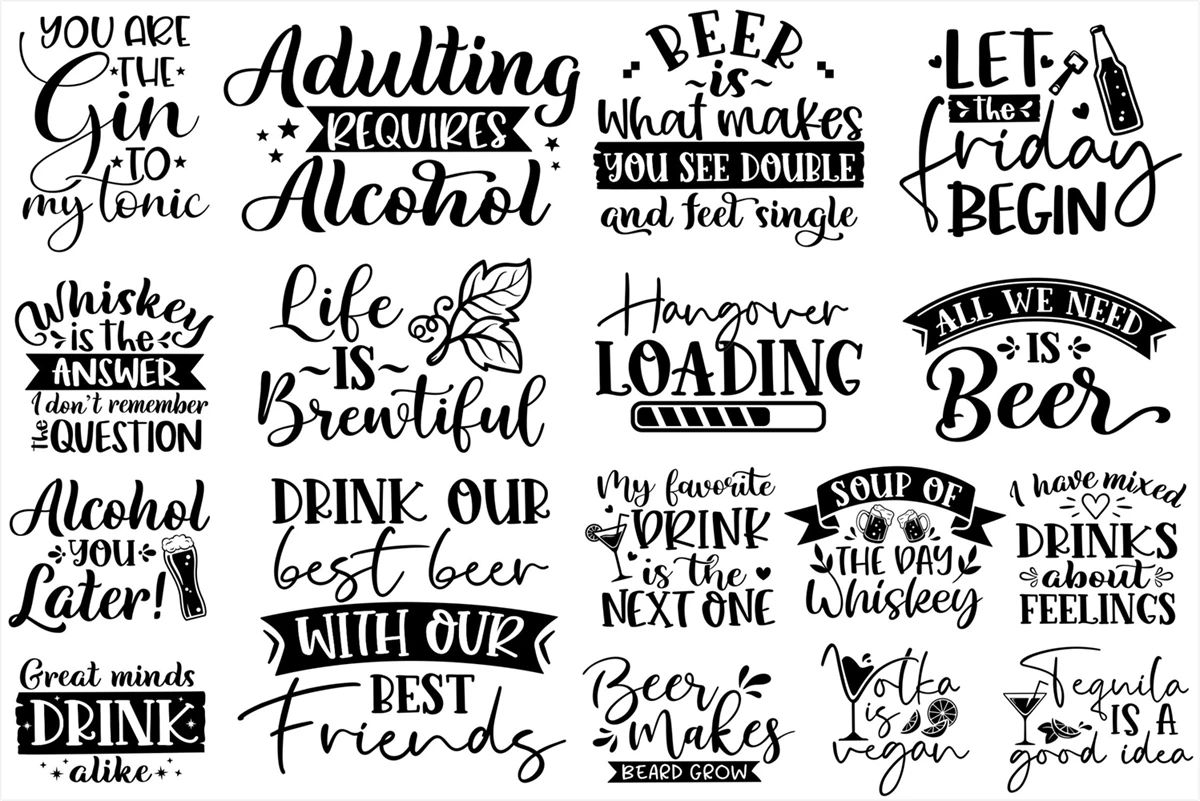 YOU ARE
THE
Gin
TO
my tonic
Adulting
REQUIRES
Alcohol
BEER
~is~
What makes
YOU SEE DOUBLE
and feel single
LET
the
friday
BEGIN
Whiskey
is the
ANSWER
I don't remember
the QUESTION
Life
~IS~
Brewtiful
Hangover
LOADING
ALL WE NEED
IS
Beer
Alcohol
YOU
Later!
DRINK OUR
best beer
WITH OUR
BEST
Friends
My favorite
DRINK
is the
NEXT ONE
SOUP OF
THE DAY
Whiskey
I have mixed
DRINKS
about
FEELINGS
Great minds
DRINK
alike
Beer
Makes
BEARD GROW
Vodka
is
vegan
Tequila
IS A
good idea